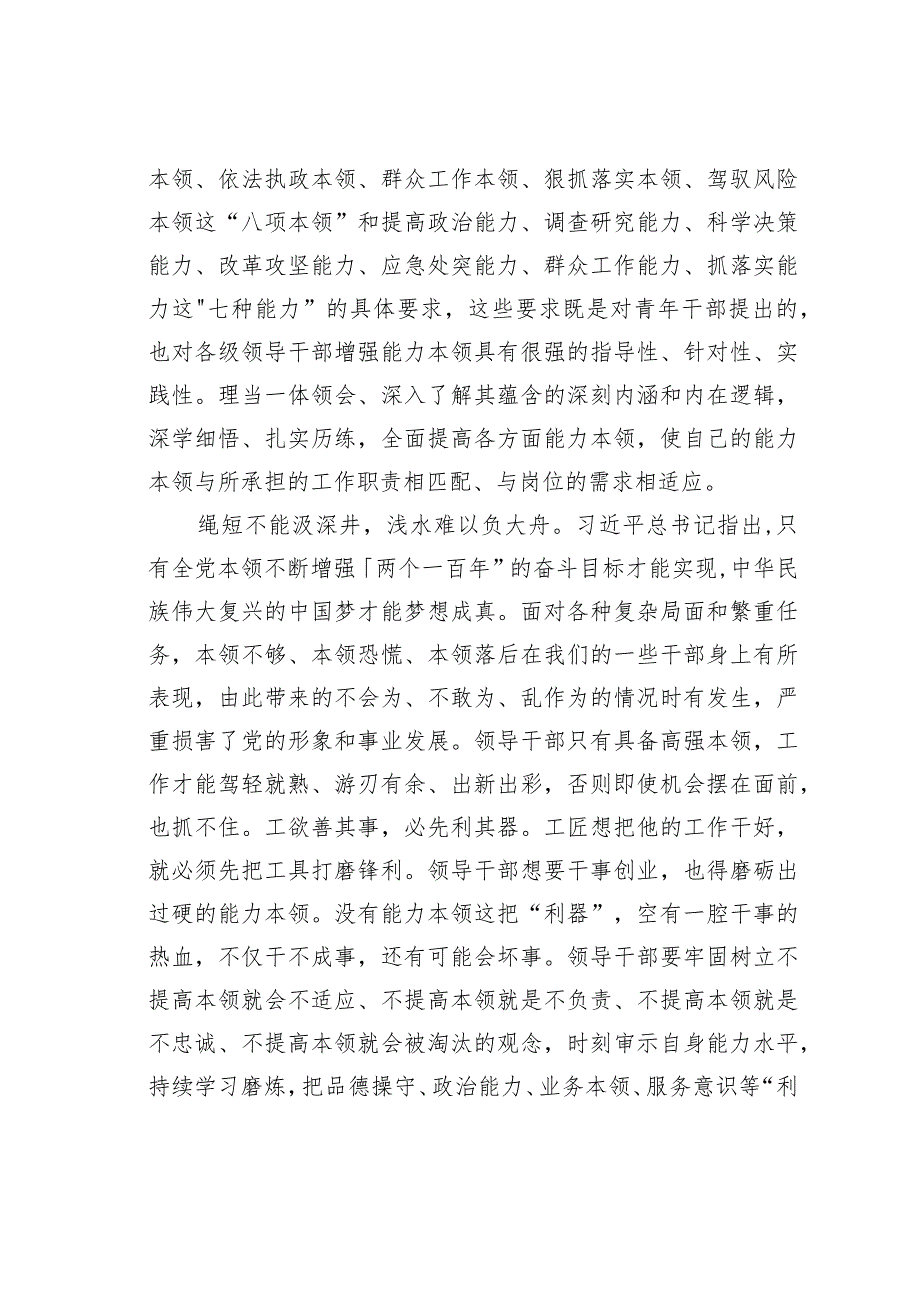 本领、依法执政本领、群众工作本领、狠抓落实本领、驾驭风险
本领这“八项本领”和提高政治能力、调查研究能力、科学决策
能力、改革攻坚能力、应急处突能力、群众工作能力、抓落实能
力这"七种能力”的具体要求，这些要求既是对青年干部提出的，
也对各级领导干部增强能力本领具有很强的指导性、针对性、实
践性。理当一体领会、深入了解其蕴含的深刻内涵和内在逻辑，
深学细悟、扎实历练，全面提高各方面能力本领，使自己的能力
本领与所承担的工作职责相匹配、与岗位的需求相适应。
绳短不能汲深井，浅水难以负大舟。习近平总书记指出,只
有全党本领不断增强「两个一百年”的奋斗目标才能实现,中华民
族伟大复兴的中国梦才能梦想成真。面对各种复杂局面和繁重任
务，本领不够、本领恐慌、本领落后在我们的一些干部身上有所
表现，由此带来的不会为、不敢为、乱作为的情况时有发生，严
重损害了党的形象和事业发展。领导干部只有具备高强本领，工
作才能驾轻就熟、游刃有余、出新出彩，否则即使机会摆在面前，
也抓不住。工欲善其事，必先利其器。工匠想把他的工作干好，
就必须先把工具打磨锋利。领导干部想要干事创业，也得磨砺出
过硬的能力本领。没有能力本领这把“利器”，空有一腔干事的
热血，不仅干不成事，还有可能会坏事。领导干部要牢固树立不
提高本领就会不适应、不提高本领就是不负责、不提高本领就是
不忠诚、不提高本领就会被淘汰的观念，时刻审示自身能力水平，
持续学习磨炼,把品德操守、政治能力、业务本领、服务意识等“利